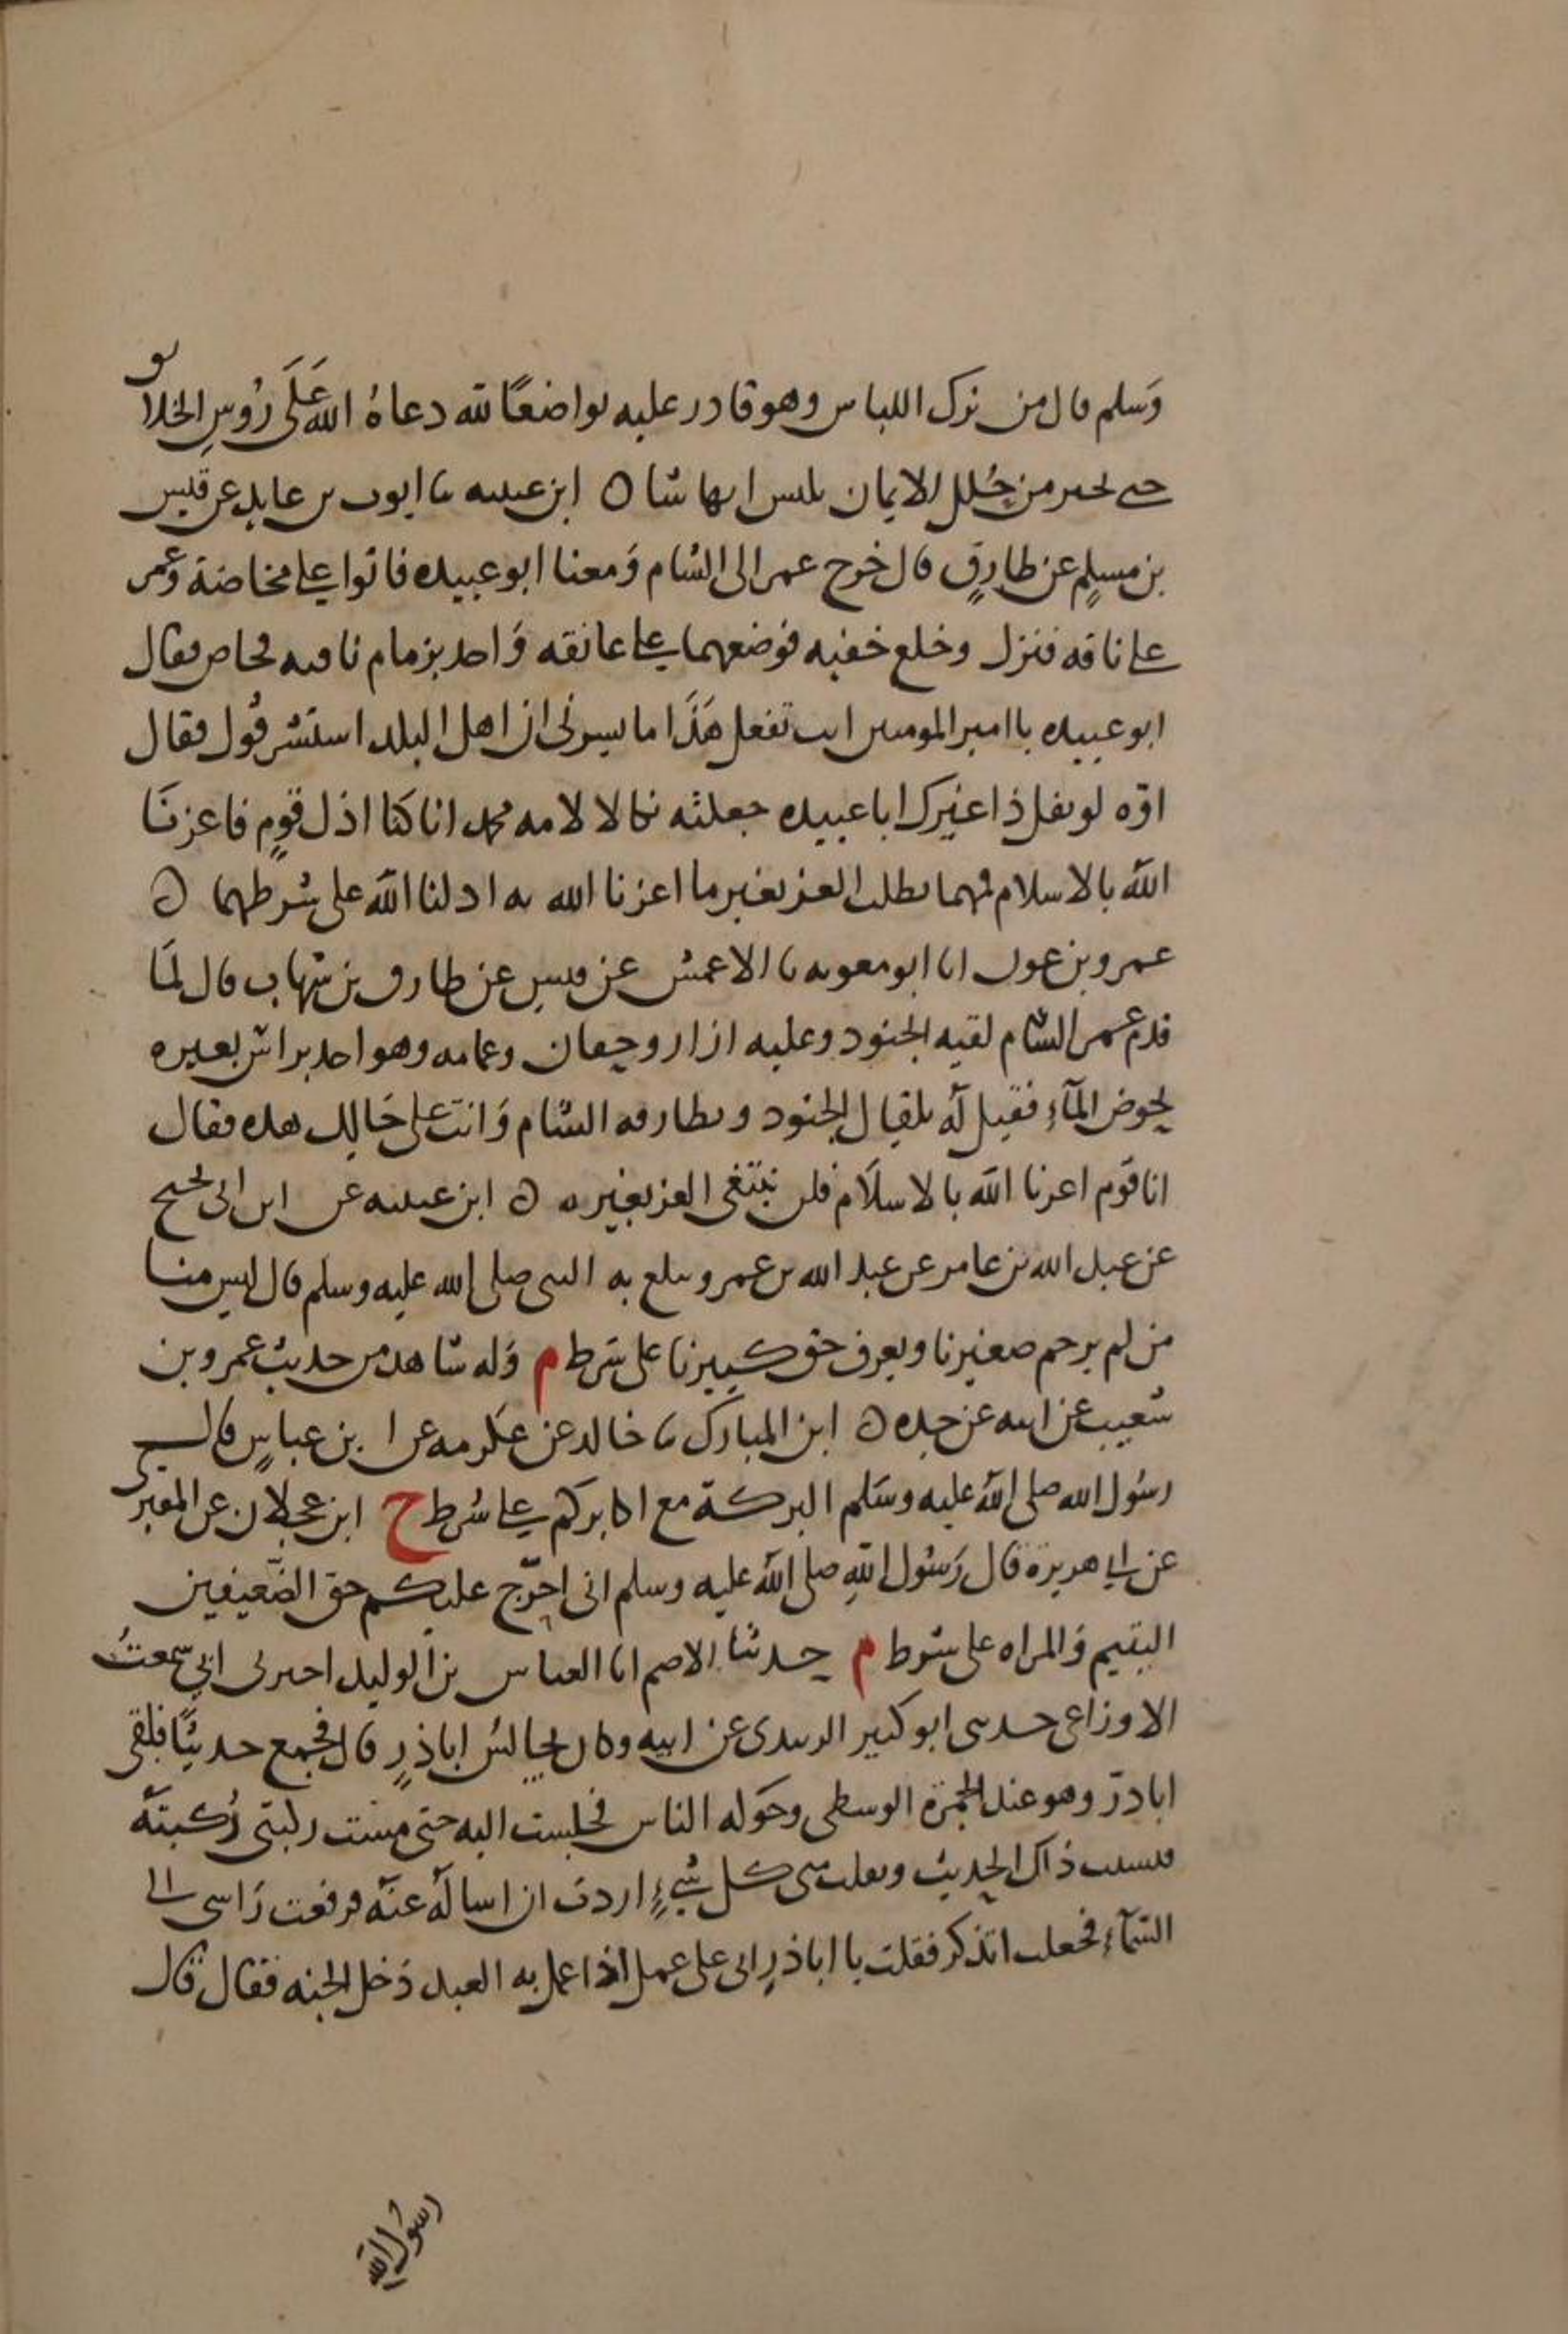 وَسلم قال من ترك اللباس وهو قادر عليه تواضعًا لله دعاهُ الله عَلَى رُوسِ الخلائق
حتى يخير من حُلل الايمان يلبس ايها شا ه ابن عيينه ثنا ايوب بن عايد عن قيس
بن مسلمٍ عن طارقٍ قال خرج عمر الى الشام وَمعنا ابو عبيده فاتوا على مخاضة وَعمر
على ناقه فنزل وخلع خفيه فوضعهما على عاتقه وَاخذ بزمام ناقته فخاض فقال
ابو عبيده يا امير المومنين انت تفعل هَذَا ما يسرني ان اهل البلد استشرفُوك فقال
اوّه لو يقل ذا غيرك ابا عبيده جعلته نكالا لامه محمد انا كنا اذل قومٍ فاعزنا
الله بالاسلام فمهما نطلب العز بغير ما اعزنا الله به اذلنا الله على شرطهما ه
عمرو بن عون انا ابو معويه ثنا الاعمش عن قيسٍ عن طارق بن شهاب قال لمّا
قدم عمر الشام لقيه الجنود وعليه ازار وخفان وعمامه وهو اخذ براس بعيره
يخوض المآء فقيل لَه يلقاك الجنود وبطارقه الشام وَانت على حَالك هذه فقال
انا قَوم اعزنا الله بالاسلَام فلن نبتغى العز بغيره ه ابن عيينه عن ابن ابى نجيح
عن عبد الله بن عامر عن عبد الله بن عمرو يبلغ به النبى صلى الله عليه وسلم قال ليس منا
من لم يرحم صغيرنا ويعرف حق كبيرنا على شرط م وَله شاهد من حديث عمرو بن
شُعيب عن ابيه عن جده ه ابن المبارك ثنا خالد عن عكرمه عن ابن عباسٍ قال
رسُول الله صلى الله عليه وسَلم البركة مع اكابركم على شرط خ ابن عجلان عن المقبرى
عن ابى هريرة قال رَسُول اللهِ صلى الله عليه وسلم انى احرّج عليكم حق الضَّعيفين
اليتيم وَالمراه على شرط م حدثنا الاصم انا العباس بن الوليد اخبرنى ابي سمعتُ
الاوزاعى حدثنى ابو كثير الزبيدى عن ابيه وكان يجالسُ اباذرٍ قال فجمع حديثًا فلقى
اباذرّ وهو عند الجمرة الوسطى وحَوله الناس فجلست اليه حتى مسّت ركبتى رُكبته
فنسيت ذاك الحديث وتفلت منى كل شىءٍ اردت ان اساله عنه فرفعت رَاسى الى
السّمآء فجعلت اتذكر فقلت يا اباذرٍ على عمل اذا عمل به العبد دَخل الجنه فقال قال
رسُول الله